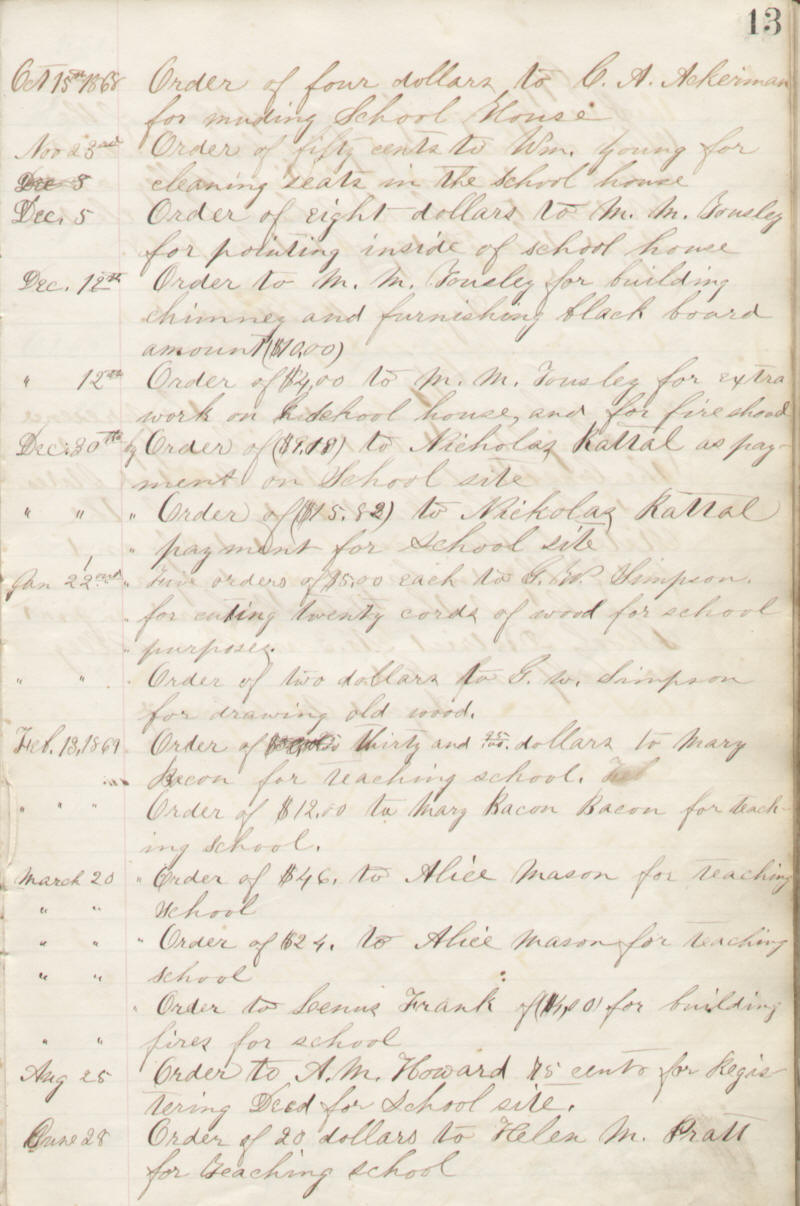 13
Oct 15th 1868 Order of four dollars to C. A. Ackerman
for muding School House
Nov 23rd Order of fifty cents to Wm. Young for
Dec 8 cleaning seats in the school house
Dec. 5 Order of eight dollars to M. M. Tousley
for pointing inside of school house
Dec. 12th Order to M. M. Tousley for building
chimney and furnishing black board
amount ($10.00)
" 12th Order of $4,00 to M. M. Tousley for extra
work on school house, and for fire shood
Dec. 30th Order of to Nicholas Kattal as pay-
ment on School site
" " " Order of ($15.82) to Nickolas Kattal
" payment for school site
Jan 22nd " Five orders of $5.00 each to G. W. Simpson.
" for cuting twenty cords of wood for school
" purposes.
" " " Order of two dollars to G. W. Simpson
for drawing old wood.
Feb. 13, 1869 Order of thirty and dollars to Mary
Bacon for teaching school.
" " " Order of $12.00 to Mary Bacon Bacon for teach-
ing school.
March 20 " Order of $46. to Alice Mason for teaching
" " School
" " " Order of $24. to Alice Mason for teaching
" " school
" Order to Lenus Frank of for building
" " fires for school
Aug 25 Order to A. M. Howard 75 cents for Regis-
tering Deed for School site.
June 28 Order of 20 dollars to Helen M. Pratt
for teaching school